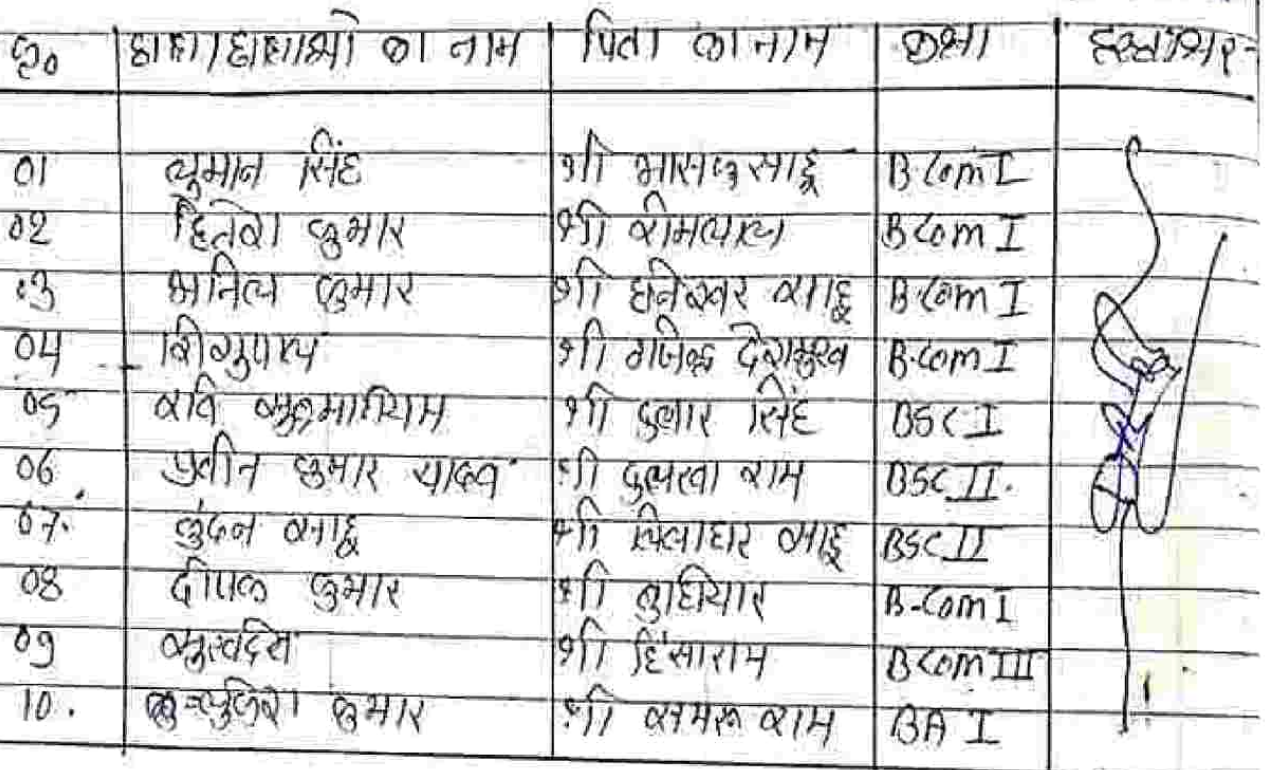 क्र० छात्र/छात्राओ का नाम पिता का नाम कक्षा हस्ताक्षर
01 लुमान सिंह श्री भासकु साहू B.Com I
02 हितेश कुमार श्री B.Com I
03 अनिल कुमार श्री धनेश्वर साहू B.Com I
04 शिशुपाल श्री देशमुख B.Com I
05 रवि श्री दुलार सिंह BSC I
06 प्रवीन कुमार यादव श्री दुलरवा राम BSC II.
07. कुंदन साहू श्री साहू BSC II
08 दीपक कुमार श्री बुधियार B.Com I
09 सुखदेव श्री हिंसाराम B.Com III
10. कुमार श्री समरू राम BA I